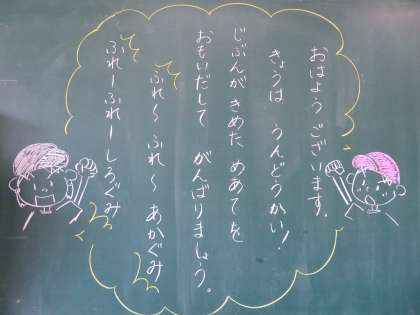 おはよう ございます。
きょうは うんどうかい!
じぶんが きめた めあてを
おもいだして がんばりましょう。
ふれ〜 ふれ〜 あかぐみ
ふれーふれーしろぐみ